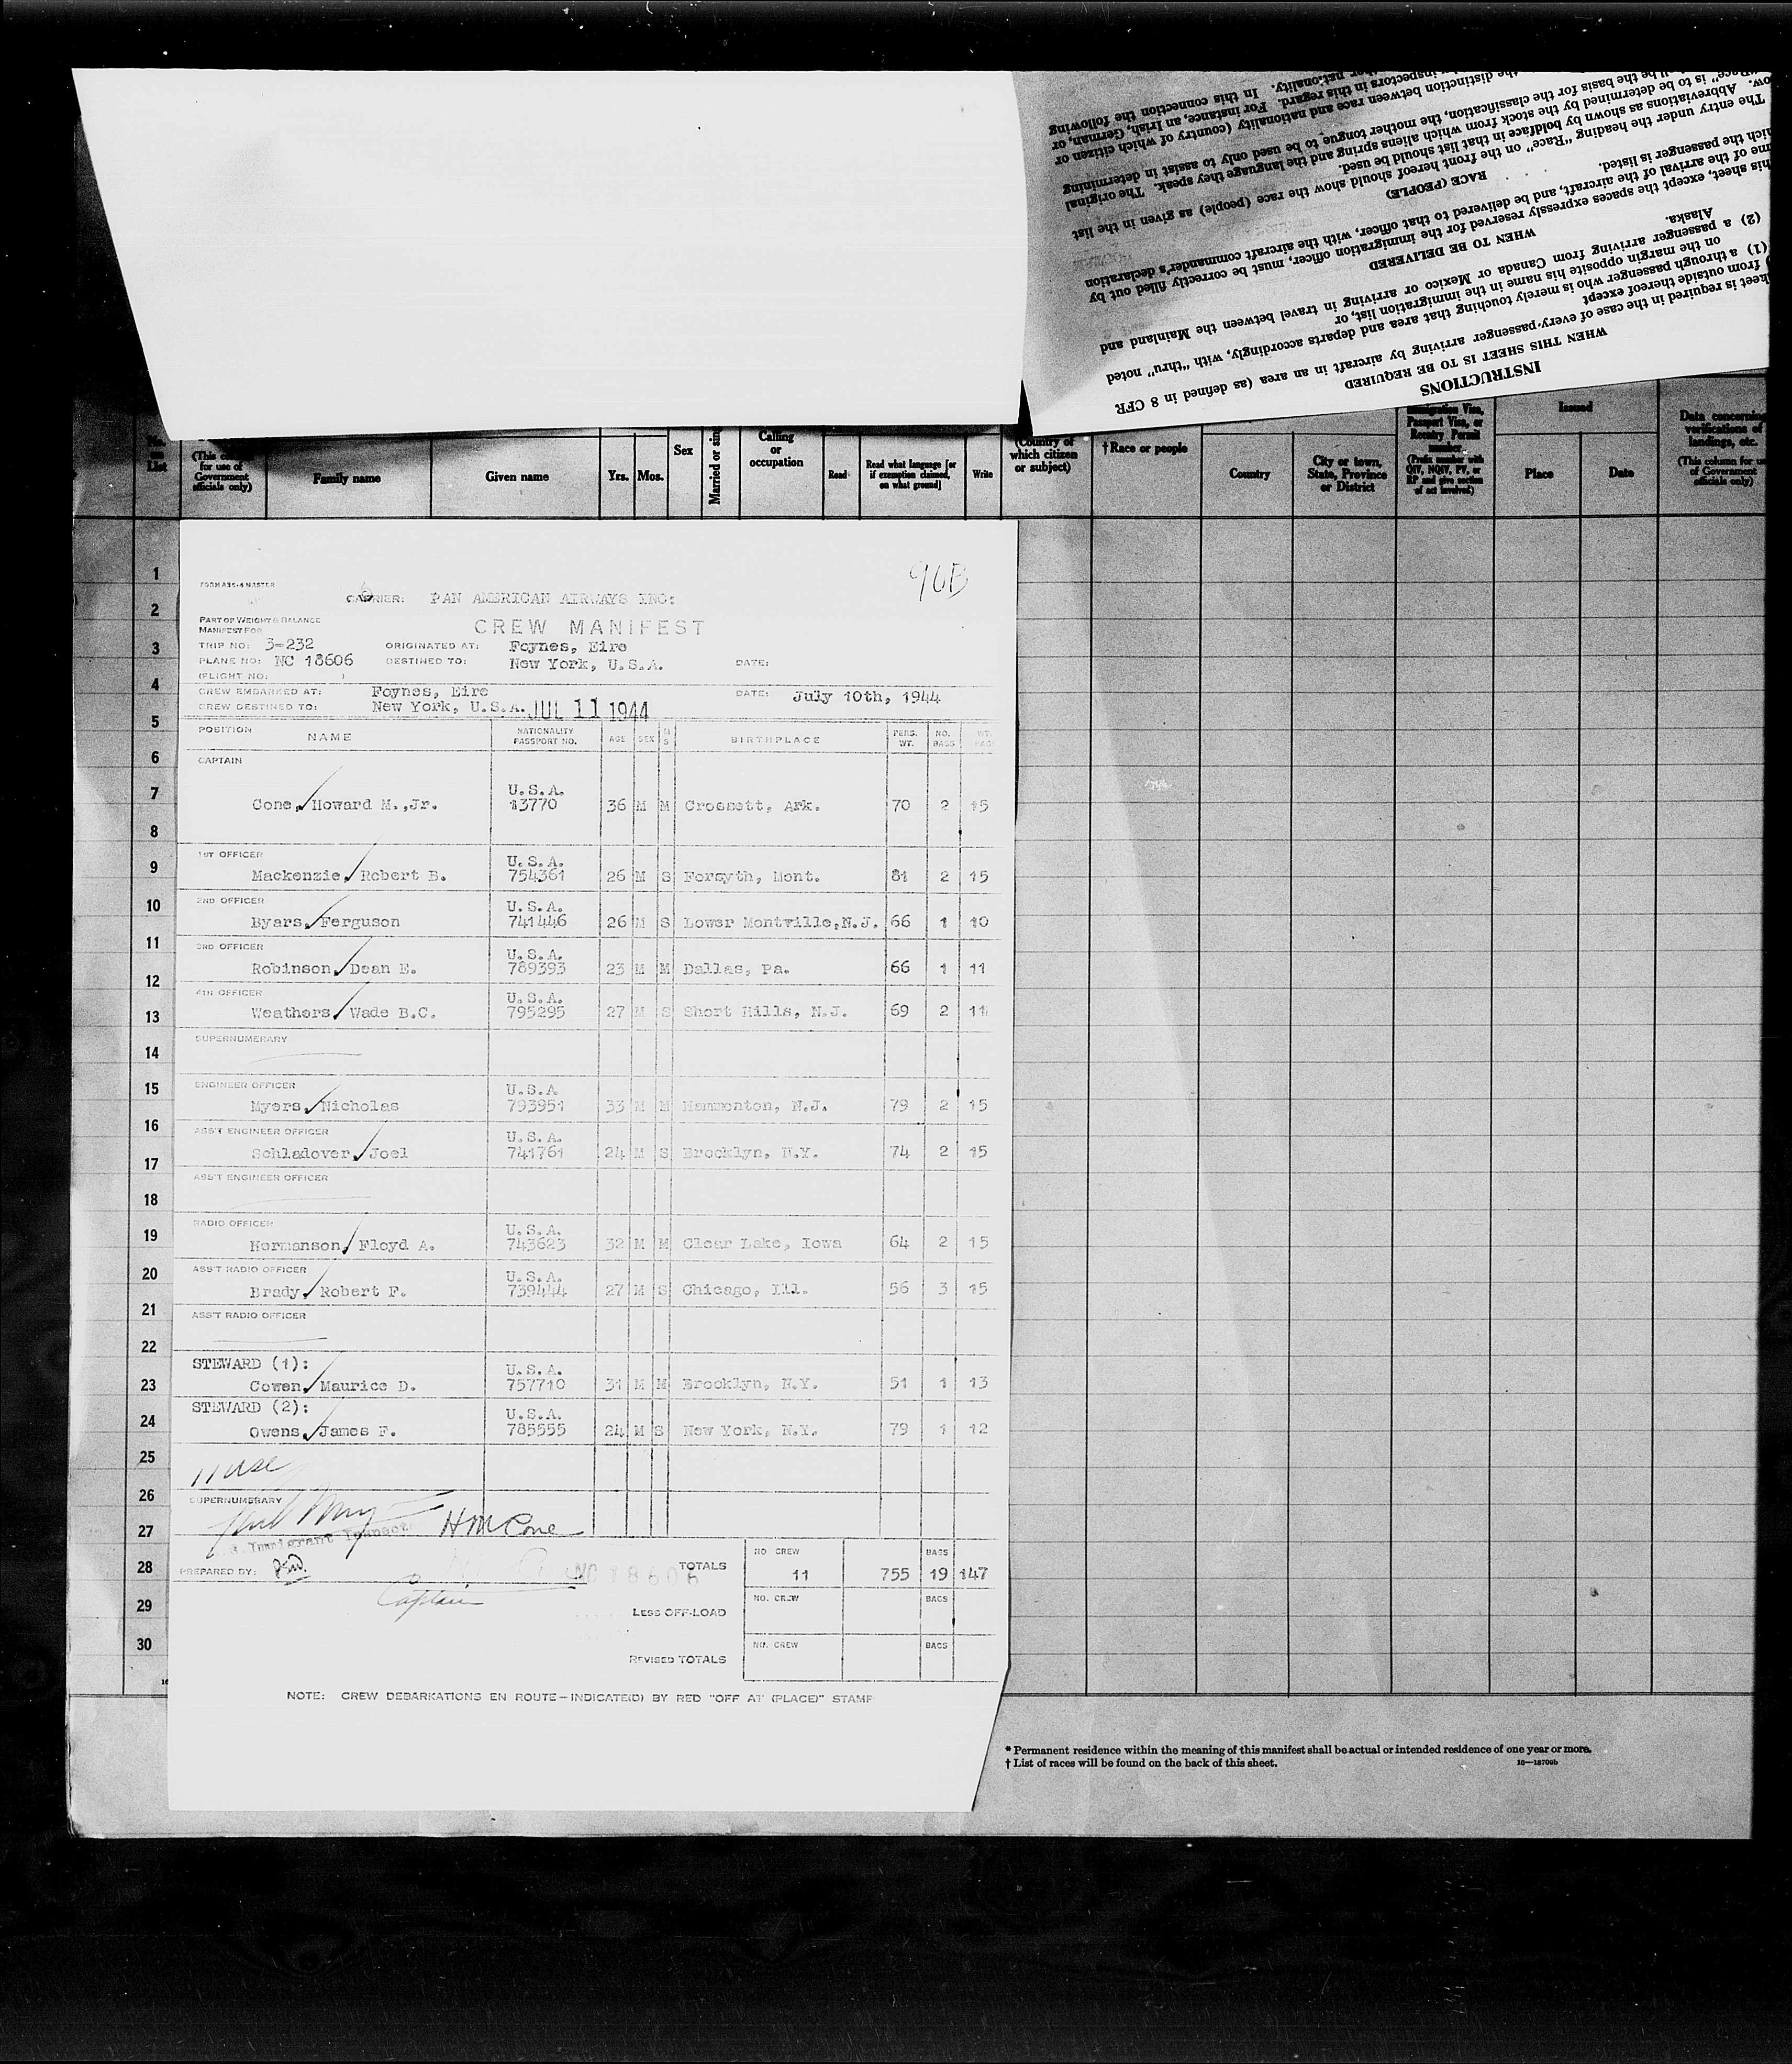 INSTRUCTIONS
WHEN THIS SHEET IS TO BE REQUIRED
heet is required in the case of every passenger arriving by aircraft in an area (as defined in 8 CFR
from outside thereof except
(1) a through passenger who is merely touching that area and departs accordingly, with "thru" noted
on the margin opposite his name in the immigration list, or
(2) a passenger arriving from Canada or Mexico or arriving in travel between the Mainland and
Alaska.
WHEN TO BE DELIVERED
his sheet, except the spaces expressly reserved for the immigration officer, must be correctly filled out by
me of the arrival of the aircraft, and be delivered to that officer, with the aircraft commander's declaration
hich the passenger is listed.
RACE (PEOPLE)
The entry under the heading "Race" on the front hereof should show the race (people) as given in the list
ow. Abbreviations as shown by boldface in that list should be used.
Race" is to be determined by the stock from which aliens spring and the language they speak. The original
be the basis for the classification, the mother tongue to be used only to assist in determining
the distinction between race and nationality (country of which citizen or
inspectors in this regard. For instance, an Irish, German, or
nationality. In this connection the following
No. on List
(This col for use of Government officials only)
Family name
Given name
Yrs.
Mos.
Sex
Married or sin
Calling or occupation
Read
Read what language [or if exemption claimed, on what ground]
Write
(Country of which citizen or subject)
† Race or people
Country
City or town, State, Province or District
Immigration Visa, Passport Visa, or Reentry Permit number
(Prefix number with QIV, NQIV, PV, or RP and give section of act involved.)
Issued
Place
Date
Data concerning verifications of landings, etc.
(This column for us of Government officials only)
1
2
3
4
5
6
7
8
9
10
11
12
13
14
15
16
17
18
19
20
21
22
23
24
25
26
27
28
29
30
FORM A35-4 MASTER
96B
CARRIER: PAN AMERICAN AIRWAYS INC:
PART OF WEIGHT & BALANCE
MANIFEST FOR
CREW MANIFEST
TRIP NO: 3-232 ORIGINATED AT: Foynes, Eire
PLANE NO: NC 18606 DESTINED TO: New York, U.S.A. DATE:
(FLIGHT NO: )
CREW EMBARKED AT: Foynes, Eire DATE: July 10th, 1944
CREW DESTINED TO: New York, U.S.A. JUL 11 1944
POSITION NAME NATIONALITY PASSPORT NO. AGE SEX M S BIRTHPLACE PERS. WT. NO. BAGS WT. BAGS
CAPTAIN
U.S.A.
Cone, Howard M.,Jr. 13770 36 M M Crossett, Ark. 70 2 15
1ST OFFICER U.S.A.
Mackenzie, Robert B. 754361 26 M S Forsyth, Mont. 81 2 15
2ND OFFICER U.S.A.
Byars, Ferguson 741446 26 M S Lower Montville,N.J. 66 1 10
3RD OFFICER U.S.A.
Robinson, Dean E. 789393 23 M M Dallas, Pa. 66 1 11
4TH OFFICER U.S.A.
Weathers, Wade B.C. 795295 27 M S Short Hills, N.J. 69 2 11
SUPERNUMERARY
ENGINEER OFFICER U.S.A
Myers, Nicholas 793951 33 M M Hammonton, N.J. 79 2 15
ASS'T ENGINEER OFFICER U.S.A.
Schladover, Joel 741761 24 M S Brooklyn, N.Y. 74 2 15
ASS'T ENGINEER OFFICER
RADIO OFFICER U.S.A.
Hermanson, Floyd A. 743623 32 M M Clear Lake, Iowa 64 2 15
ASS'T RADIO OFFICER U.S.A.
Brady, Robert F. 739444 27 M S Chicago, Ill. 56 3 15
ASS'T RADIO OFFICER
STEWARD (1): U.S.A.
Cowen, Maurice D. 757710 31 M M Brooklyn, N.Y. 51 1 13
STEWARD (2): U.S.A.
Owens, James F. 785555 24 M S New York, N.Y. 79 1 12
SUPERNUMERARY
HM Cone
Immigrant Inspector
PREPARED BY:
Captain
NC 18606
TOTALS NO CREW 11 755 BAGS 19 147
LESS OFF-LOAD NO. CREW BAGS
REVISED TOTALS NO. CREW BAGS
NOTE: CREW DEBARKATIONS EN ROUTE—INDICATE(D) BY RED "OFF AT (PLACE)" STAMP
* Permanent residence within the meaning of this manifest shall be actual or intended residence of one year or more.
† List of races will be found on the back of this sheet.
16—18700b